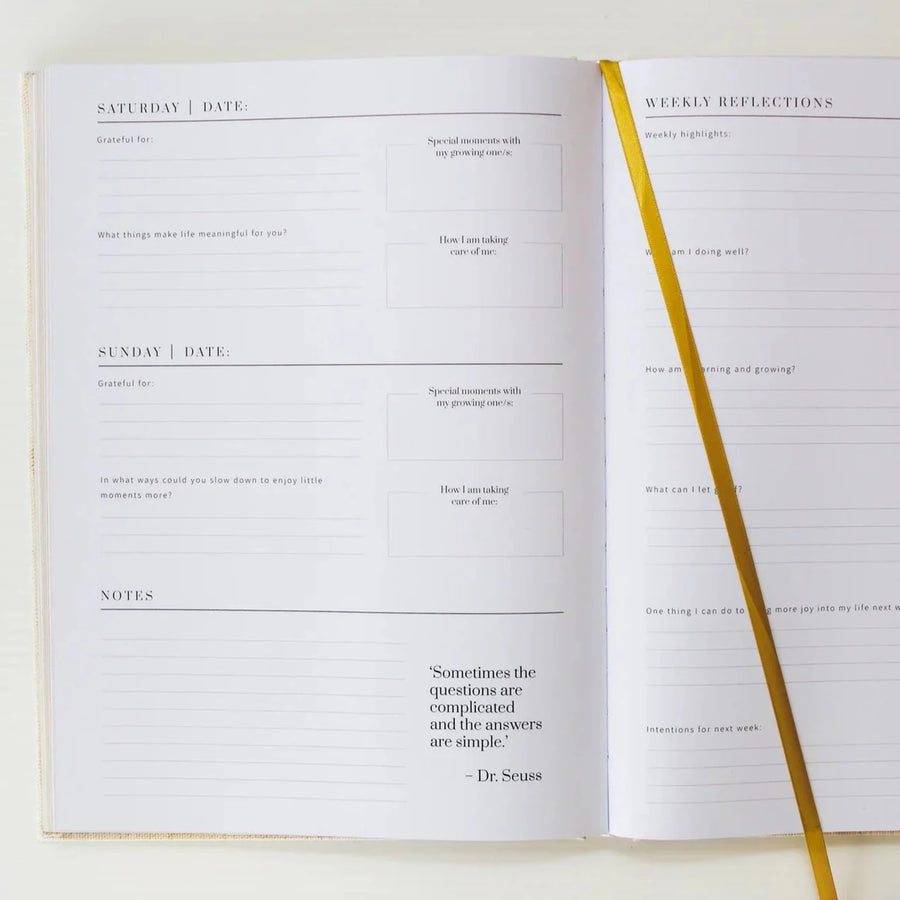 SATURDAY | DATE:
Grateful for:
Special moments with
my growing one/s:
What things make life meaningful for you?
How I am taking
care of me:
SUNDAY | DATE:
Grateful for:
Special moments with
my growing one/s:
In what ways could you slow down to enjoy little
moments more?
How I am taking
care of me:
NOTES
‘Sometimes the
questions are
complicated
and the answers
are simple.’
– Dr. Seuss
WEEKLY REFLECTIONS
Weekly highlights:
am I doing well?
How am and growing?
What can I let
One thing I can do to more joy into my life next
Intentions for next week: